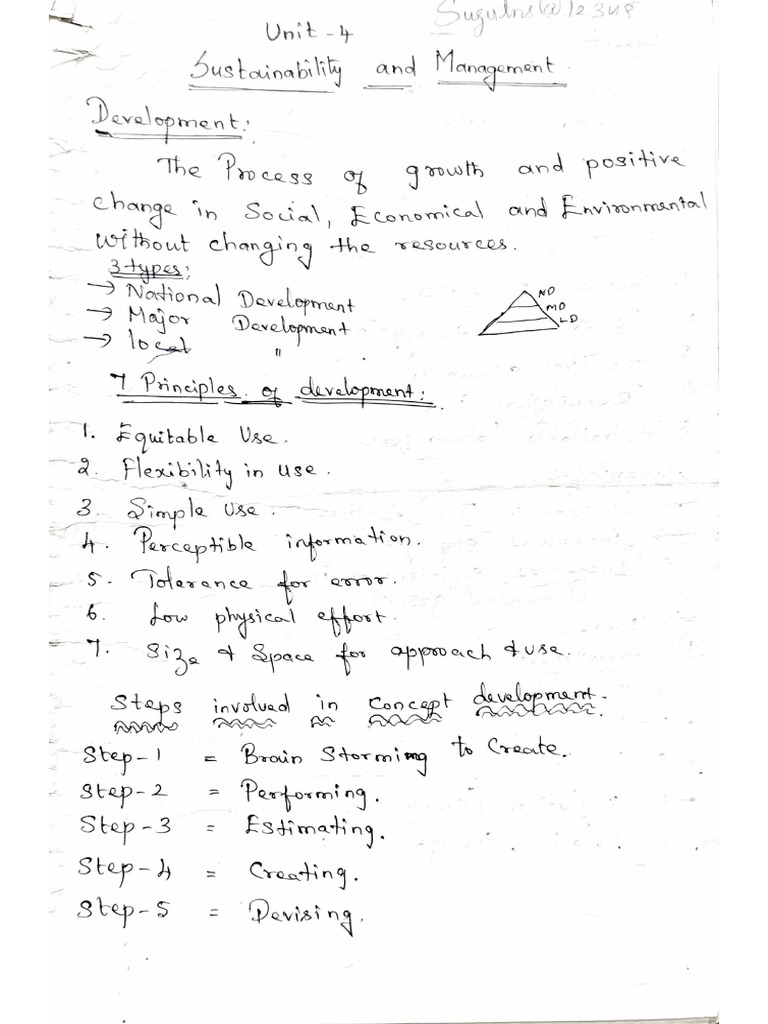 Unit - 4
Sustainability and Management.
Development:
The Process of growth and positive
change in Social, Economical and Environmental
without changing the resources.
3 types:
→ National Development
→ Major Development
→ local "
ND
MD
LD
7 Principles of development:
1. Equitable Use.
2. Flexibility in use.
3. Simple Use.
4. Perceptible information.
5. Tolerance for error.
6. Low physical effort.
7. Size & Space for approach & use.
Steps involved in concept development.
Step-1 = Brain Storming to Create.
Step-2 = Performing.
Step-3 = Estimating.
Step-4 = Creating.
Step-5 = Devising.